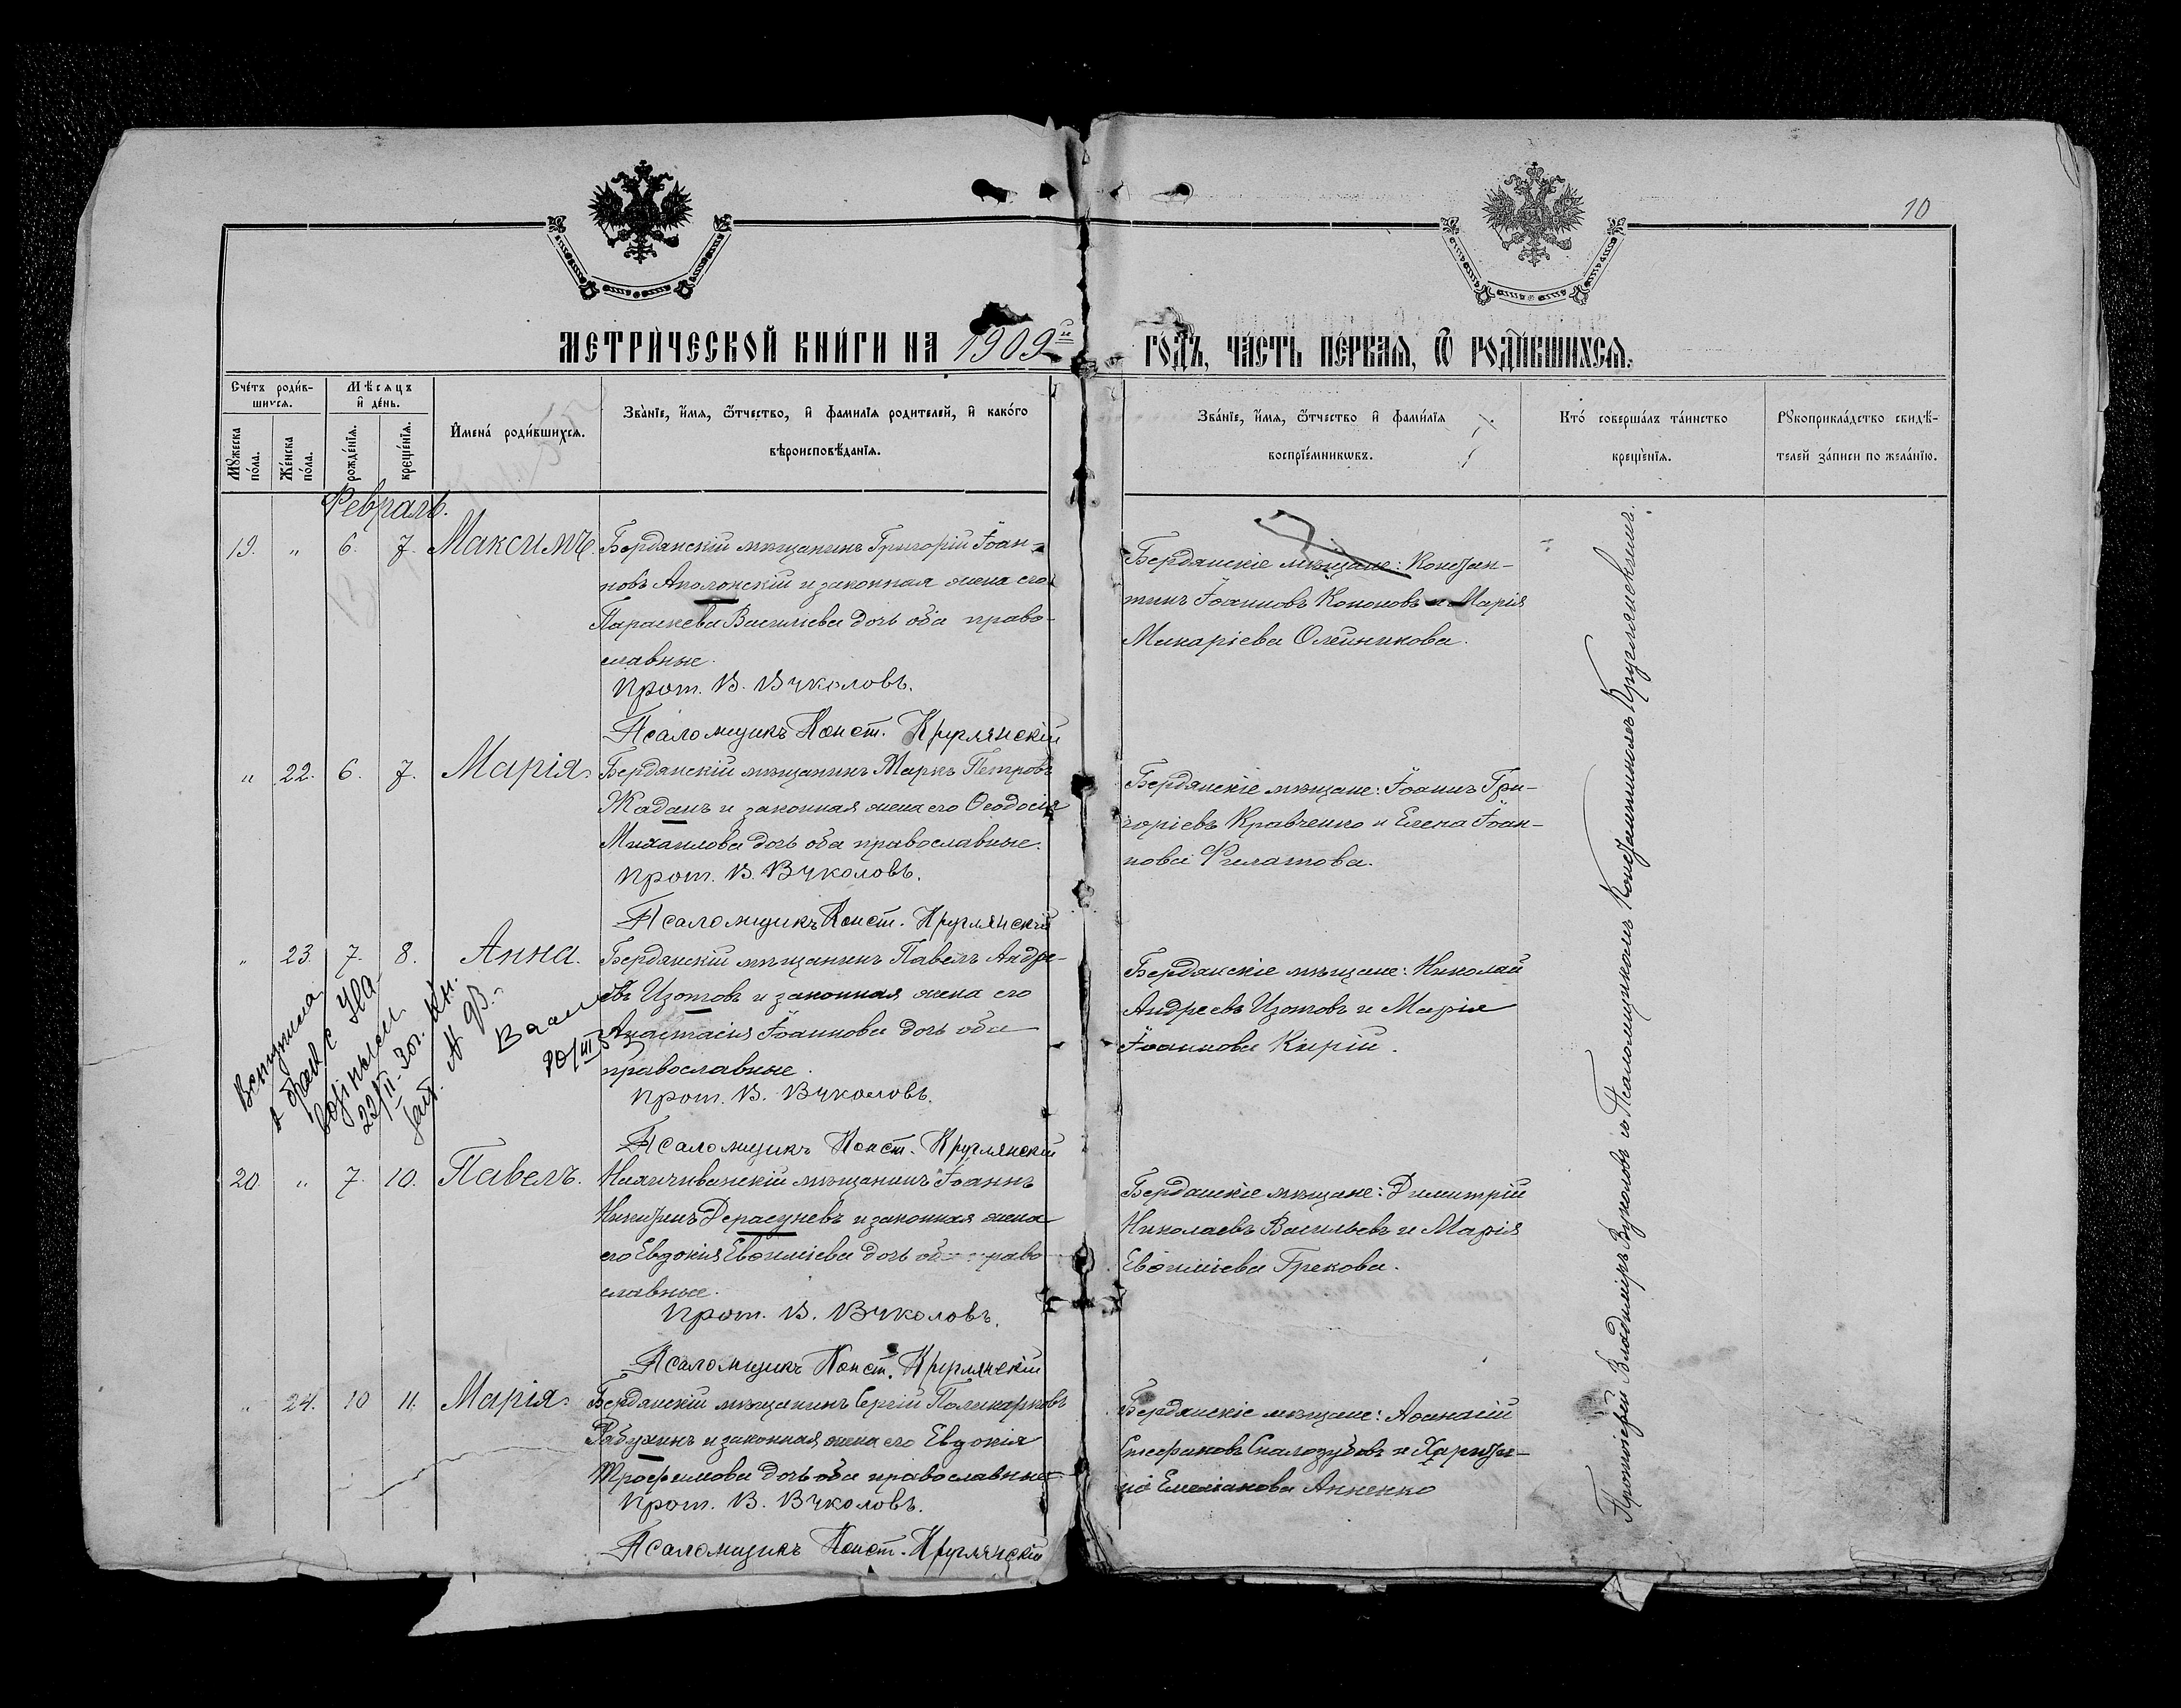 10
МЕТРИЧЕСКОЙ КНИГИ НА 1909й ГОДЪ, ЧАСТЬ ПЕРВАЯ, Ѿ РОДИВШИХСЯ.
Счетъ родив-
шихся.
Мѣсяцъ
и день.
Мужеска
пола.
Женска
пола.
рожденія.
крещенія.
Имена родившихся.
Званіе, имя, ѿтчество, и фамилія родителей, и какого
вѣроисповѣданія.
Званіе, имя, ѿтчество и фамилія
воспріемниковъ.
Кто совершалъ таинство
крещенія.
Рукоприкладство свидѣ-
телей записи по желанію.
Февраль.
19. " 6. 7. Максимъ. Бердянскій мѣщанинъ Григорій Іоан-
новъ Аполонскій и законная жена его
Параскева Василіева дочь оба право-
славные.
Прот. В. Вуколовъ.
Псаломщикъ Конст. Круглянскій
Бердянскіе мѣщане: Констан-
тинъ Іоанновъ Кононовъ и Марія
Макаріева Олейникова.
" 22. 6. 7. Марія. Бердянскій мѣщанинъ Маркъ Петровъ
Жаданъ и законная жена его Ѳеодосія
Михаилова дочь оба православные.
Прот. В. Вуколовъ.
Псаломщикъ Конст. Круглянскій
Бердянскіе мѣщане: Іоаннъ Гри-
горіевъ Кравченко и Елена Іоан-
нова Филатова.
" 23. 7. 8. Анна. Бердянскій мѣщанинъ Павелъ Андре-
евъ Изотовъ и законная жена его
Анастасія Іоаннова дочь оба
православные.
Прот. В. Вуколовъ.
Псаломщикъ Конст. Круглянскій
Бердянскіе мѣщане: Николай
Андреевъ Изотовъ и Марія
Іоаннова Кирій.
Вступила
в брак с
20. " 7. 10. Павелъ. мѣщанинъ Іоаннъ
Никитинъ Дерасуневъ и законная жена
его Евдокія Евѳиміева дочь оба право
славные.
Прот. В. Вуколовъ.
Псаломщикъ Конст. Круглянскій
Бердянскіе мѣщане: Димитрій
Николаевъ Васильевъ и Марія
Евѳиміева Грекова.
" 24. 10 11. Марія. Бердянскій мѣщанинъ Сергій Поликарповъ
Рабухинъ и законная жена его Евдокія
Трофимова дочь оба православные
Прот. В. Вуколовъ.
Псаломщикъ Конст. Круглянскій
Бердянскіе мѣщане: Аѳанасій
Стефановъ Скалозубовъ и Харити-
на Емеліанова Анненко
Протоіерей Владиміръ Вуколовъ съ Псаломщикомъ Константиномъ Круглянскимъ.